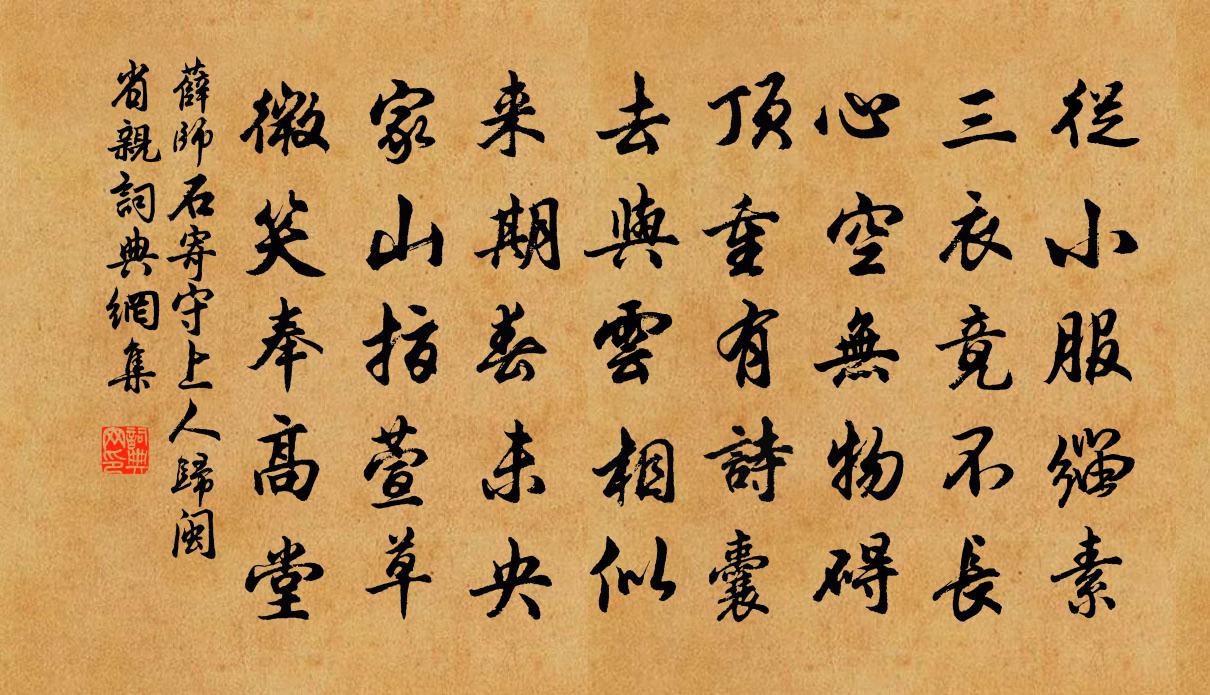 從小服緇素
三衣竟不長
心空無物碍
頂重有詩囊
去與雲相似
来期春未央
家山指萱草
微笑奉高堂
薛師石寄守上人歸閩
省親詞典網集
詞典
网印